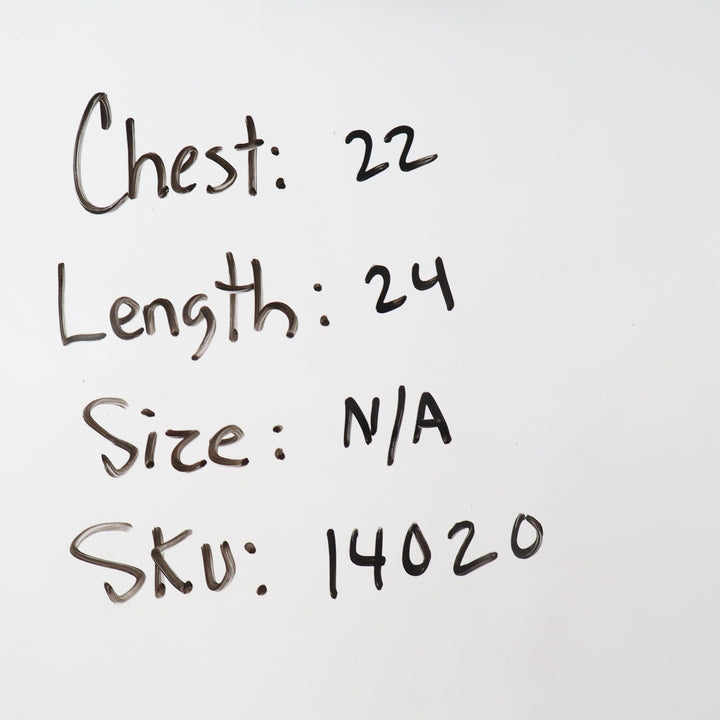 Chest: 22
Length: 24
Size: N/A
SKU: 14020